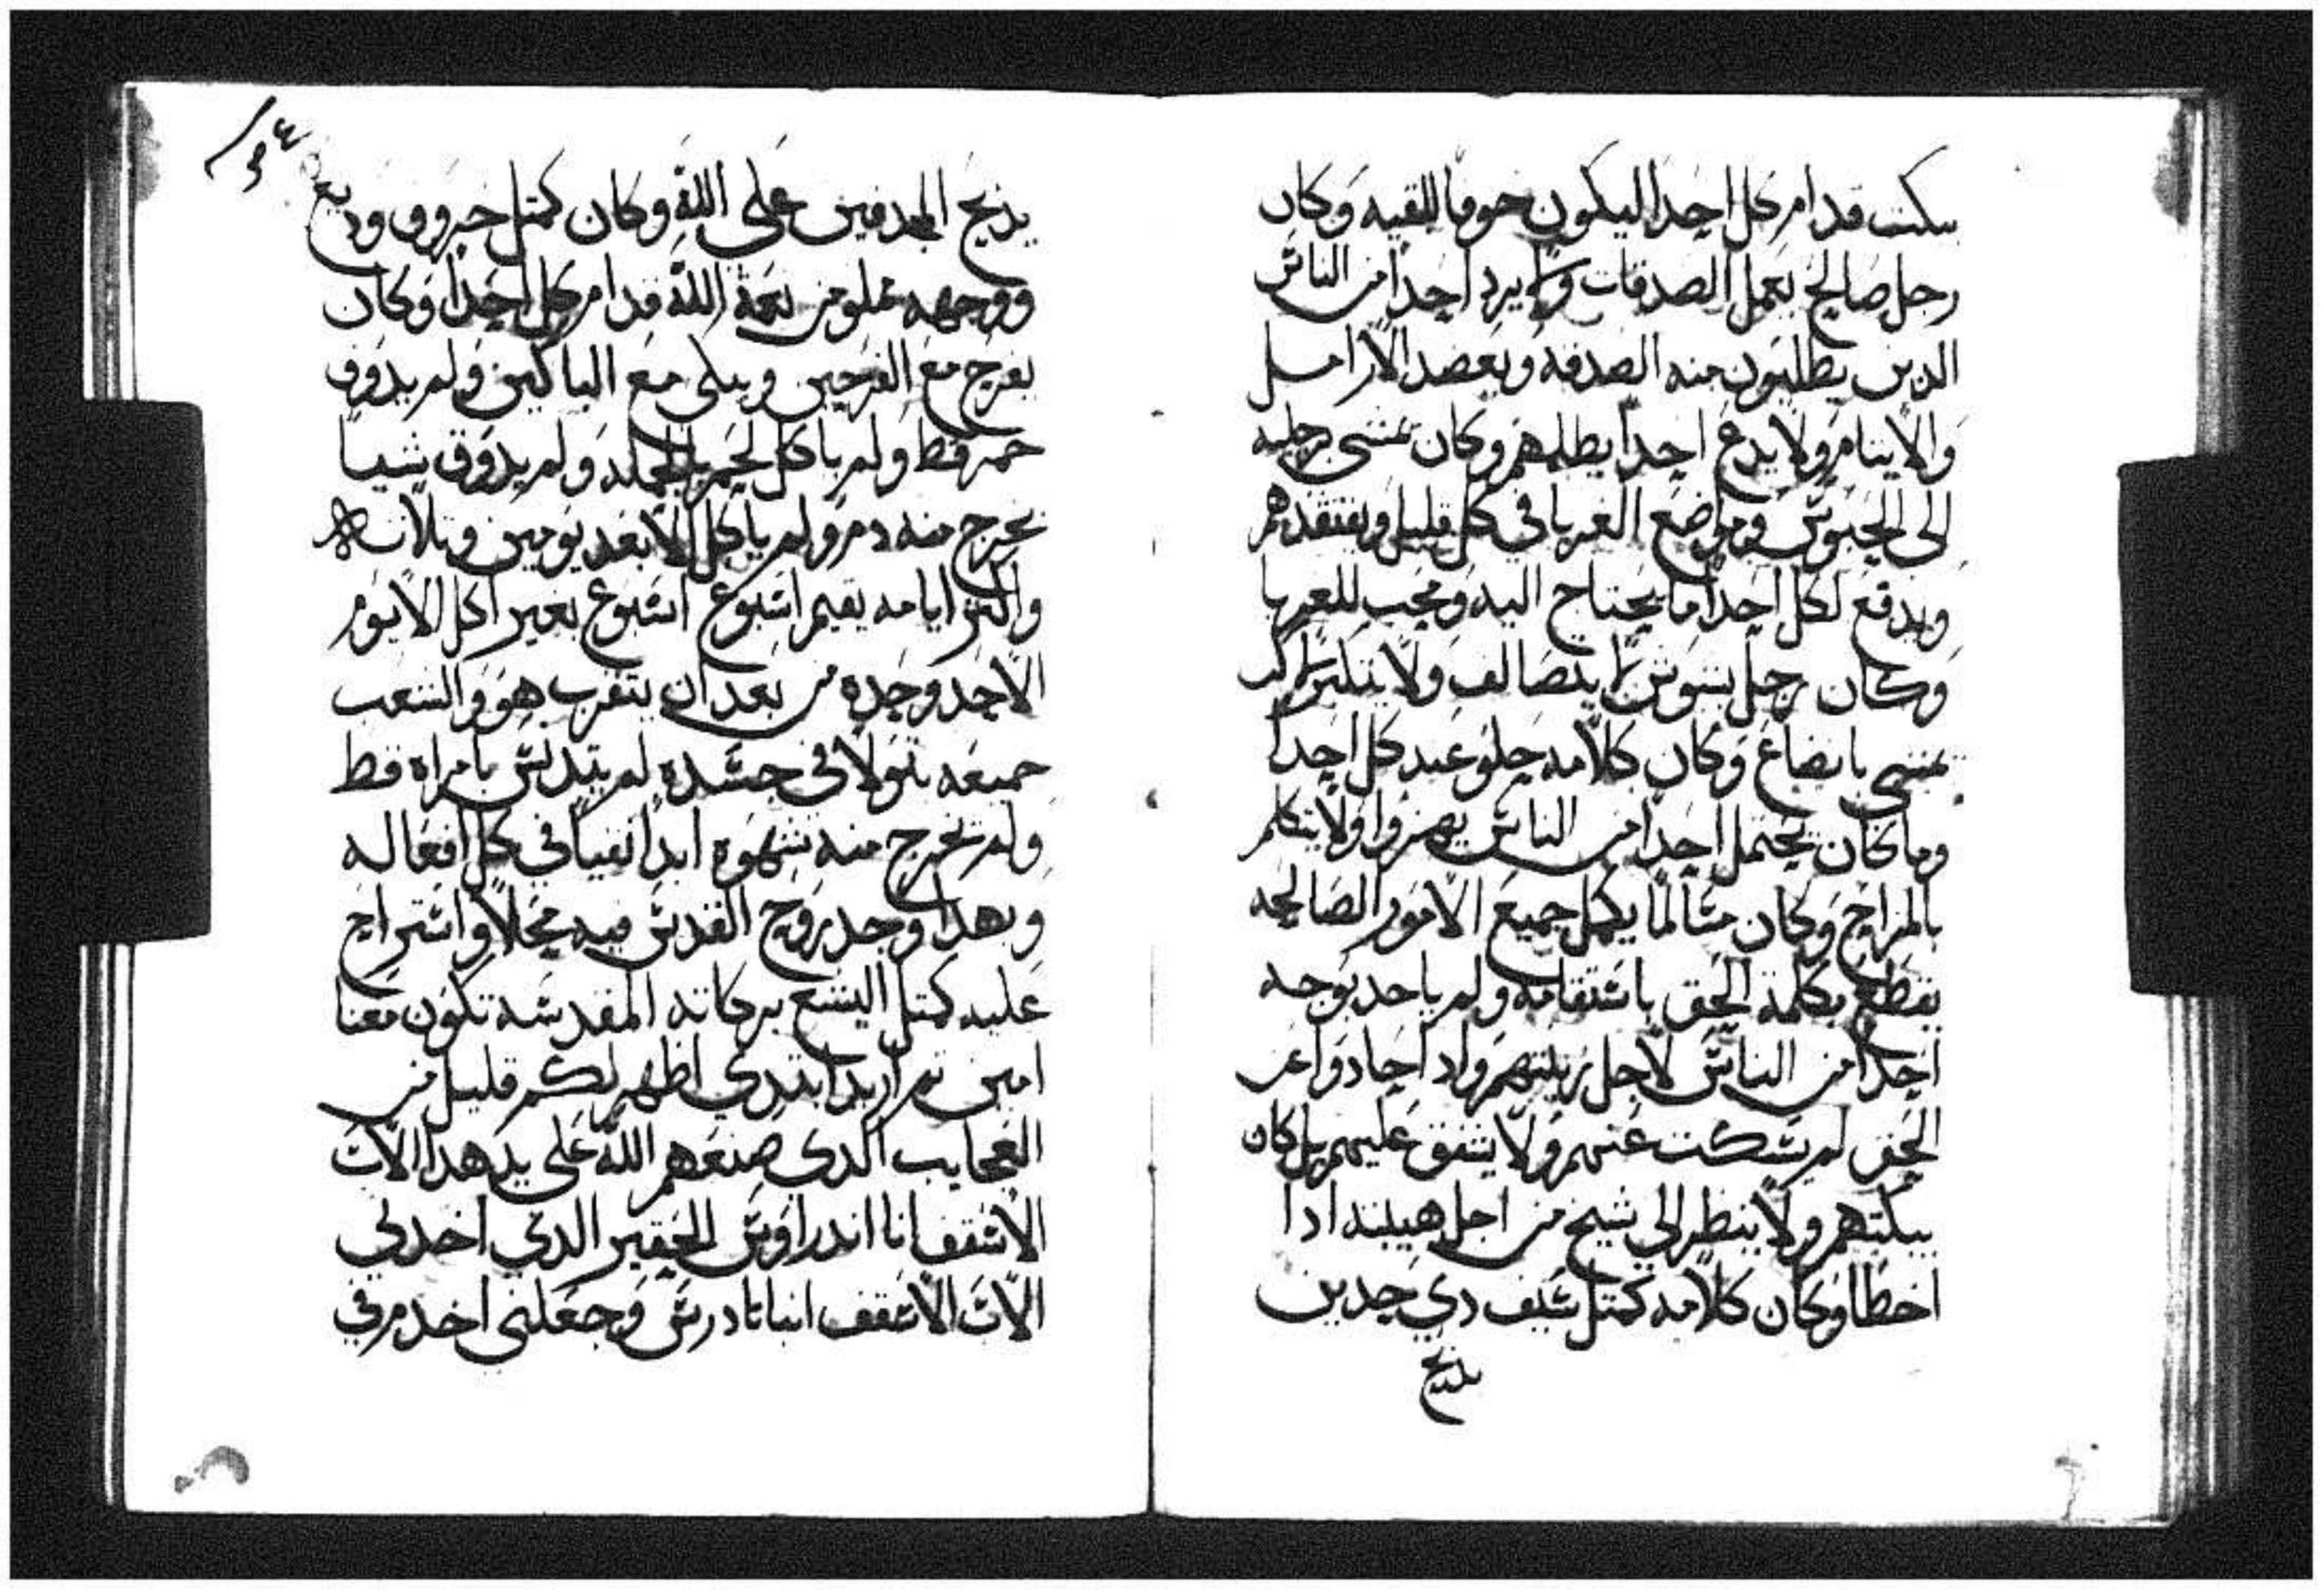 يبكت قدام كل احدا ليكون خوفا للقيه وكان
رجل صالح يعمل الصدقات ولا يرد احدا من الناس
الدين يطلبون منه الصدقه ويعضد الارامل
والايتام ولا يدع احدا يظلمهم وكان يمشى برجليه
الى الحبوس ومواضع الغربا في كل قليل ويفتقدهم
ويدفع لكل احدا ما يحتاج اليه ومحب للغربا
وكان رجل بشوش لا يتصالف ولا يتكبر بل
يمشى باتضاع وكان كلامه حلو عند كل احدا
وما كان يحتمل احدا من الناس يهزوا ولا يتكلم
بالمزاح وكان مسالما يكمل جميع الامور الصالحه
يقطع بكلمة الحق باستقامه ولم ياخد بوجه
احدا من الناس لاجل زيلتهم واد احادوا عن
الحق لم يسكت عنهم ولا يتفق عليهم بل كان
يبكتهم ولا ينظر الي شيخ من اجل هيبته ادا
اخطا وكان كلامه كمتل سيف دي حدين
يدبح
٥٤
يدبح المجدفين على الله وكان كمتل خروف وديع
ووجهه مملو من نعمة الله قدام كل احدا وكان
يفرح مع الفرحين ويبكى مع الباكين ولم يدوق
خمر قط ولم ياكل لحم بالجمله ولم يدوق شيا
يخرج منه دم ولم ياكل الا بعد يومين وتلاته
واكتر ايامه يقيم اسبوع اسبوع بغير اكل الا يوم
الاحد وحده من بعد ان يتقرب هو والشعب
جميعه بتولا في جسده لم يتدنس بامراه قط
ولم تخرج منه شهوه ابدا نقيا في كل افعاله
وبهدا وجد روح القدس فيه محلا واستراح
عليه كمتل اليشع بركاته المقدسه تكون معنا
امين تم اريد ابتدي اظهر لكم قليل من
العجايب الدي صنعهم الله على يد هدا الاب
الاسقف انا اندراوس الحقير الدي اخدني
الاب الاسقف انبا تادرس وجعلنى اخدم في